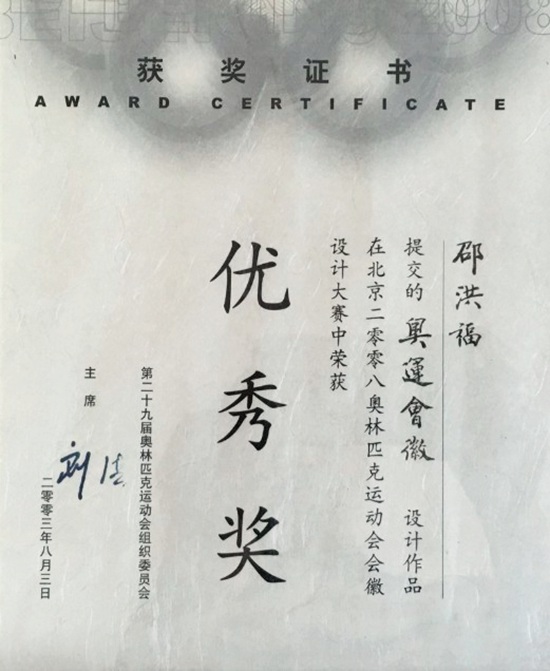 获奖证书
AWARD CERTIFICATE
邵洪福
提交的 奥運會徽 设计作品
在北京二零零八奥林匹克运动会会徽
设计大赛中荣获
优秀奖
第二十九届奥林匹克运动会组织委员会
主席
二零零三年八月三日